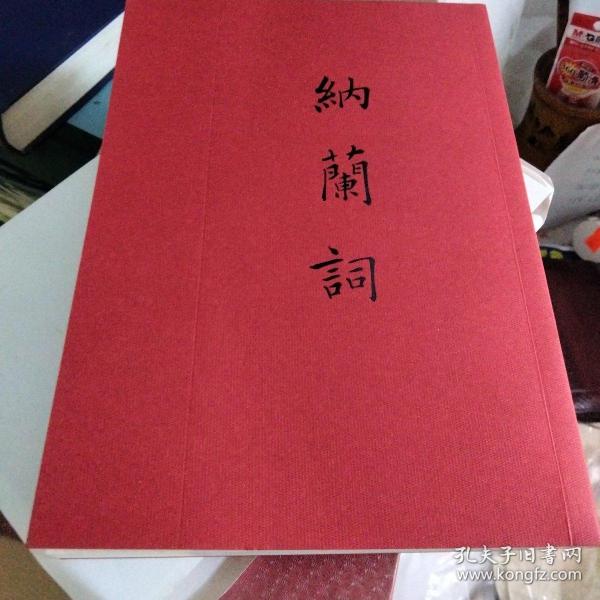 納蘭詞
M&G
孔夫子旧書网
www.kongfz.com